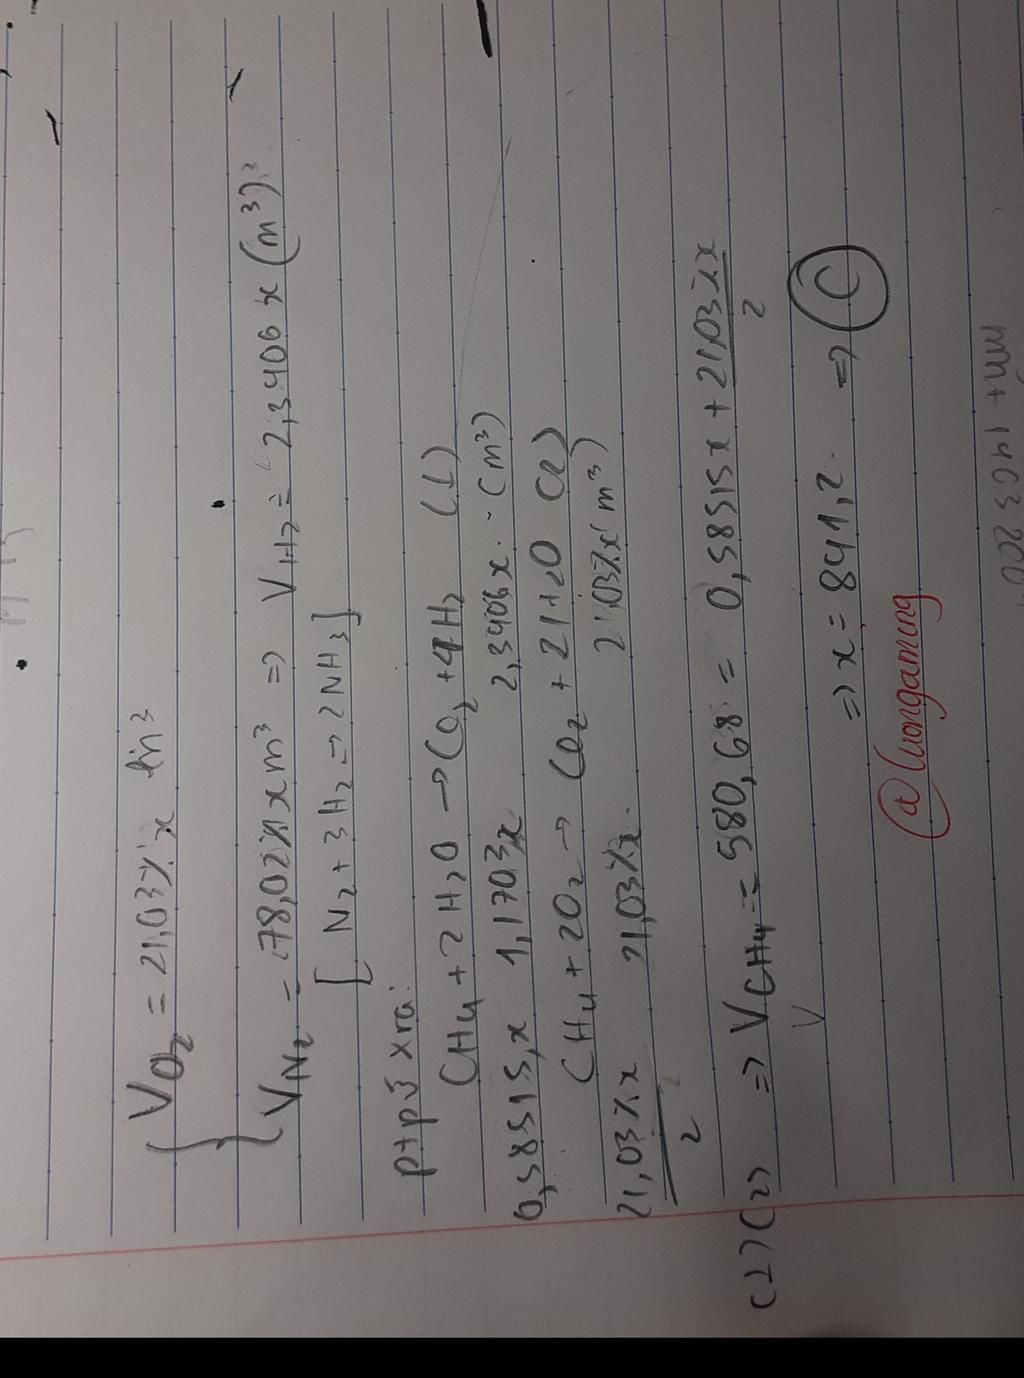 V_O₂ = 21,03% x m³
V_N₂ = 78,02% x m³ ⇒ V_H₂ = 2,3406 x (m³)
[N₂ + 3H₂ ⇒ 2NH₃]
ptpứ xra:
CH₄ + 2H₂O → CO₂ + 4H₂ (1)
0,58515x 1,1703x 2,3406x (m³)
CH₄ + 2O₂ → CO₂ + 2H₂O (2)
21,03%x/2 21,03%x 21,03%x (m³)
(1)(2) ⇒ V_CH₄ = 580,68 = 0,58515x + 21,03%x/2
V
⇒ x = 841,2 ⇒ C
@Cuongaming